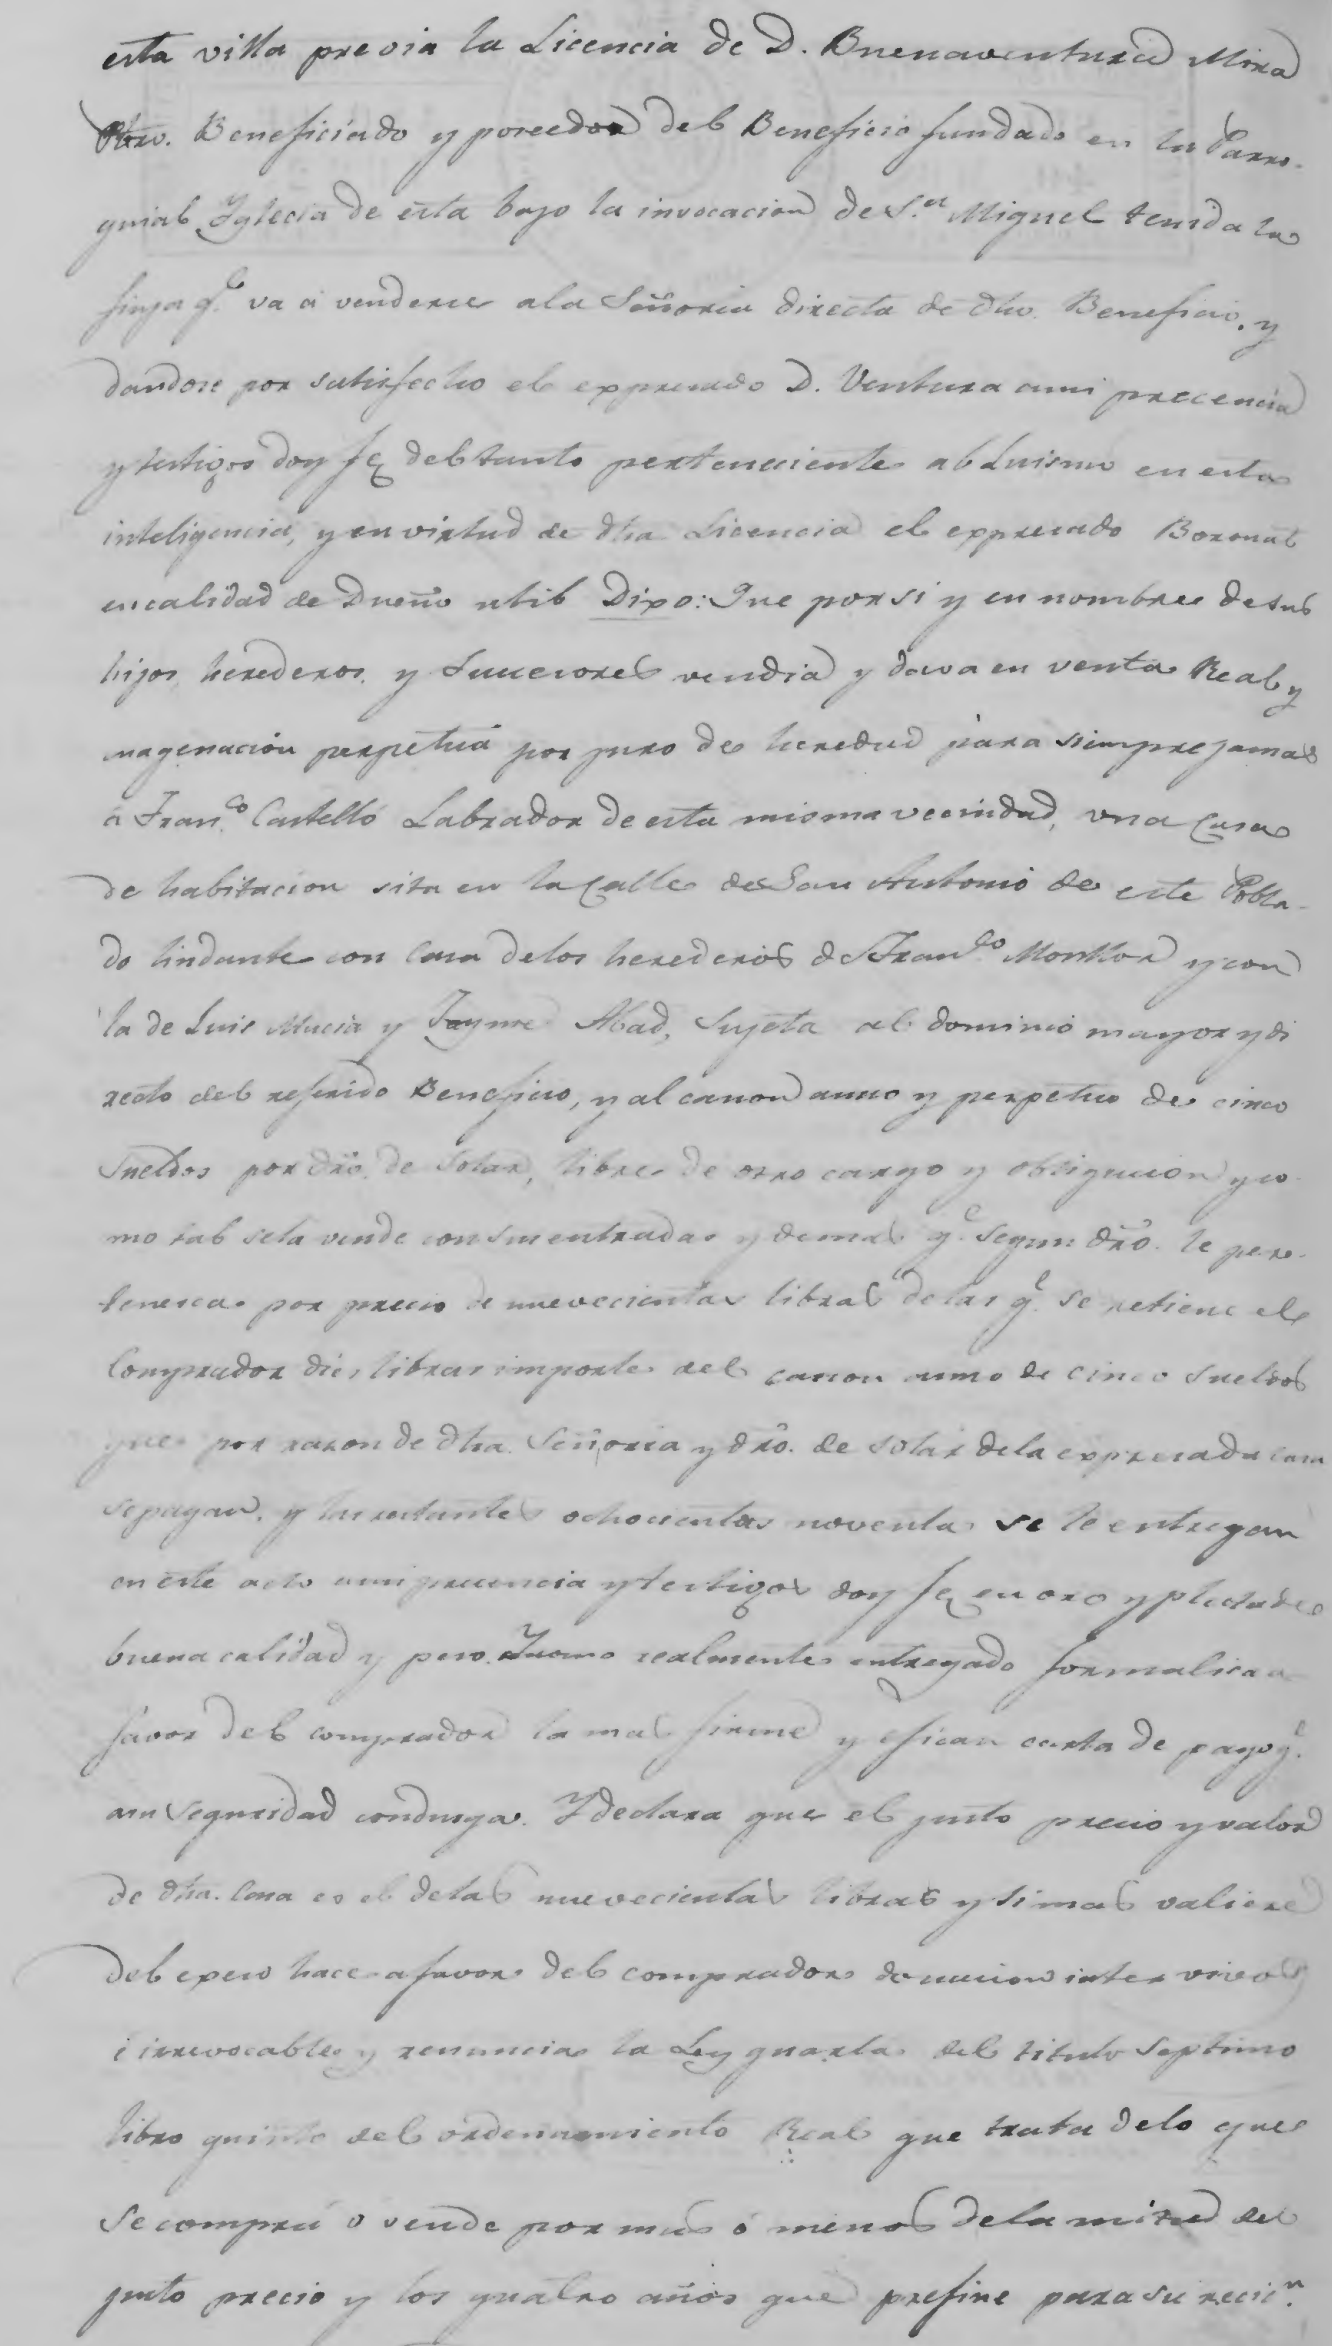 esta villa previa la Licencia de D. Buenaventura Mira
Pbro. Beneficiado y poseedor del Beneficio fundado en la Parro-
quial Yglecia de esta bajo la invocacion de S.n Miguel tenida la
finca q.e va á venderse ala Señoria directa de dho. Beneficio, y
dandose por satisfecho el expresado D. Ventura ami precencia
y testigos doy fe del tanto perteneciente al Luismo en esta
inteligencia, y en virtud de dha Licencia el expresado Boronat
en calidad de Dueño util Dixo: Que por si y en nombre de sus
hijos, herederos, y successores vendia y dava en venta Real y
enagenacion perpetua por juro de heredad para siempre jamas
á Fran.co Castelló Labrador de esta misma vecindad, una Casa
de habitacion sita en la Calle de San Antonio de este Pobla-
do lindante con Casa de los herederos de Fran.co Monllor y con
la de Luis Macia y Jayme Abad, Sujeta al dominio mayor y di
recto del referido Beneficio, y al canon anno y perpetuo de cinco
Sueldos por dro. de Solar, libre de otro cargo y obligacion y co-
mo tal se la vende con sus entradas y demas q.e segun dro. le per-
tenesca por precio de nuevecientas libras de las q.e se retiene el
Comprador dies libras importe del canon anno de cinco Sueldos
que por razon de dha. Señoria y dro. de solar de la expresada casa
se pagan, y las restantes ochocientas noventa se le entregan
en este acto ami presencia y testigos doy fe en oro y plata de
buena calidad y peso. Y como realmente entregado formalisa a
favor del comprador la mas firme y eficas carta de pago q.e
asu Seguridad condusga. Y declara que el justo precio y valor
de dha. Casa es el de las nuevecientas libras y si mas valiere
del exceso hace a favor del comprador donacion inter vivos
é irrevocable y renuncia la Ley quarta del titulo Septimo
libro quinto del ordenamiento Real que trata de lo que
se compra ó vende por mas ó menos de la mitad del
justo precio y los quatro años que prefine para su recic.n